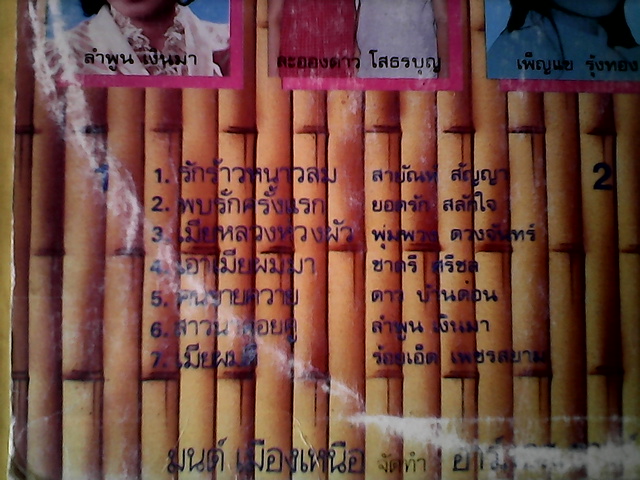 ลำพูน เงินมา
ละอองดาว โสธรบุญ
เพ็ญแข รุ่งทอง
1
2
1. รักร้าวหนาวลม สายัณห์ สัญญา
2. พบรักครั้งแรก ยอดรัก สลักใจ
3. เมียหลวงหวงผัว พุ่มพวง ดวงจันทร์
4. เอาเมียผมมา ชาตรี ศรีชล
5. คนขายควาย ดาว บ้านดอน
6. สาวนาคอยคู่ ลำพูน เงินมา
7. เมียผมดี ร้อยเอ็ด เพชรสยาม
มนต์ เมืองเหนือ จัดทำ